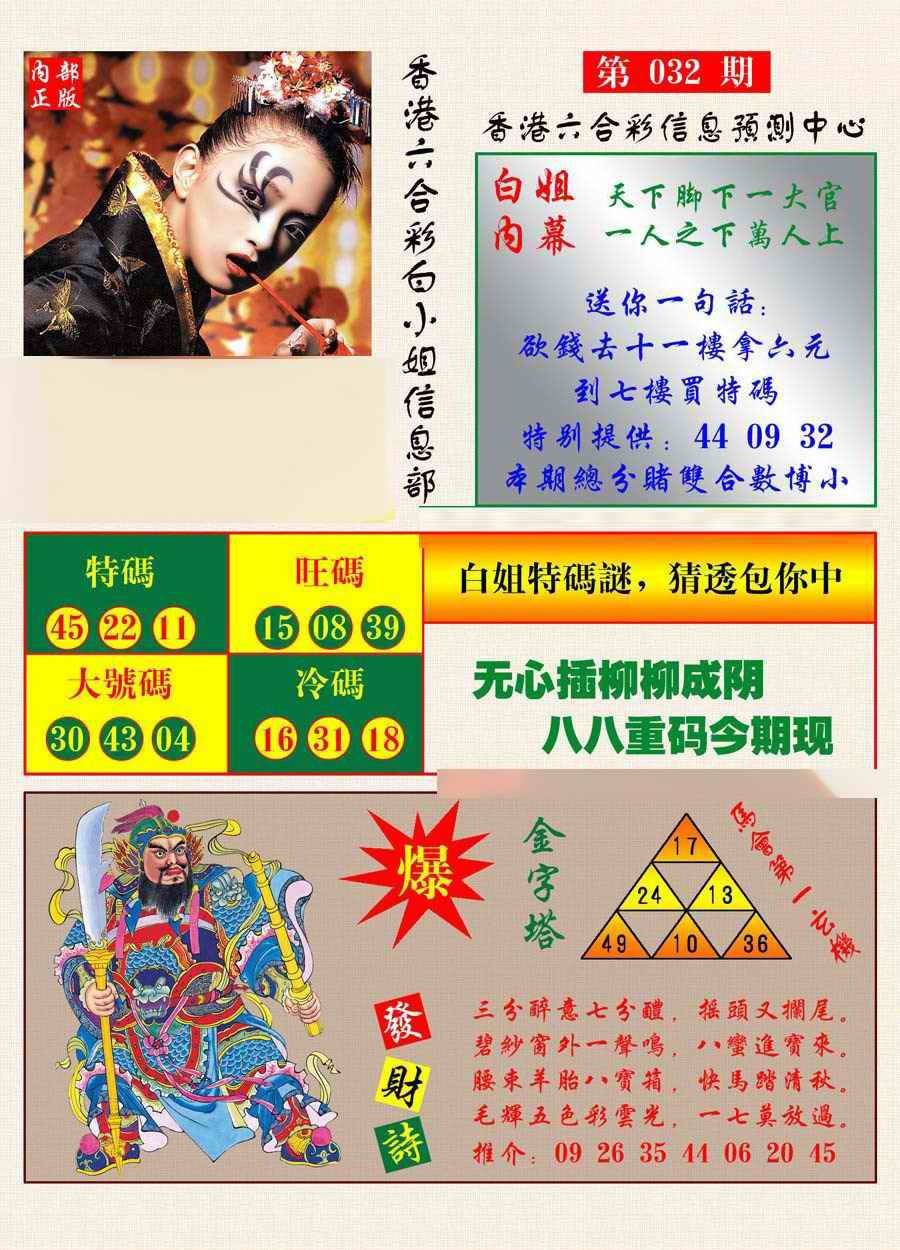 内部
正版
香港六合彩白小姐信息部
第 032 期
香港六合彩信息預測中心
白姐
内幕
天下脚下一大官
一人之下萬人上
送你一句話：
欲錢去十一樓拿六元
到七樓買特碼
特别提供：44 09 32
本期總分賭雙合數博小
特碼
45 22 11
旺碼
15 08 39
大號碼
30 43 04
冷碼
16 31 18
白姐特碼謎，猜透包你中
无心插柳柳成阴
八八重码今期现
爆
金字塔
17
24 13
49 10 36
馬會第一玄機
發財詩
三分醉意七分醴，摇頭又擱尾。
碧紗窗外一聲鳴，八蠻進寶來。
腰束羊胎八寶箱，快馬踏清秋。
毛輝五色彩雲光，一七莫放過。
推介：09 26 35 44 06 20 45